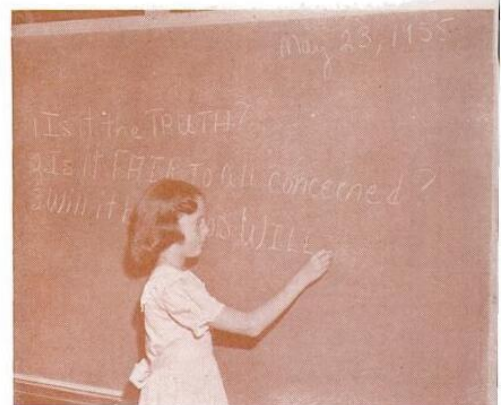 May 23, 1955
1 Is it the TRUTH?
2 Is it FAIR TO All concerned?
3 Will it WILL